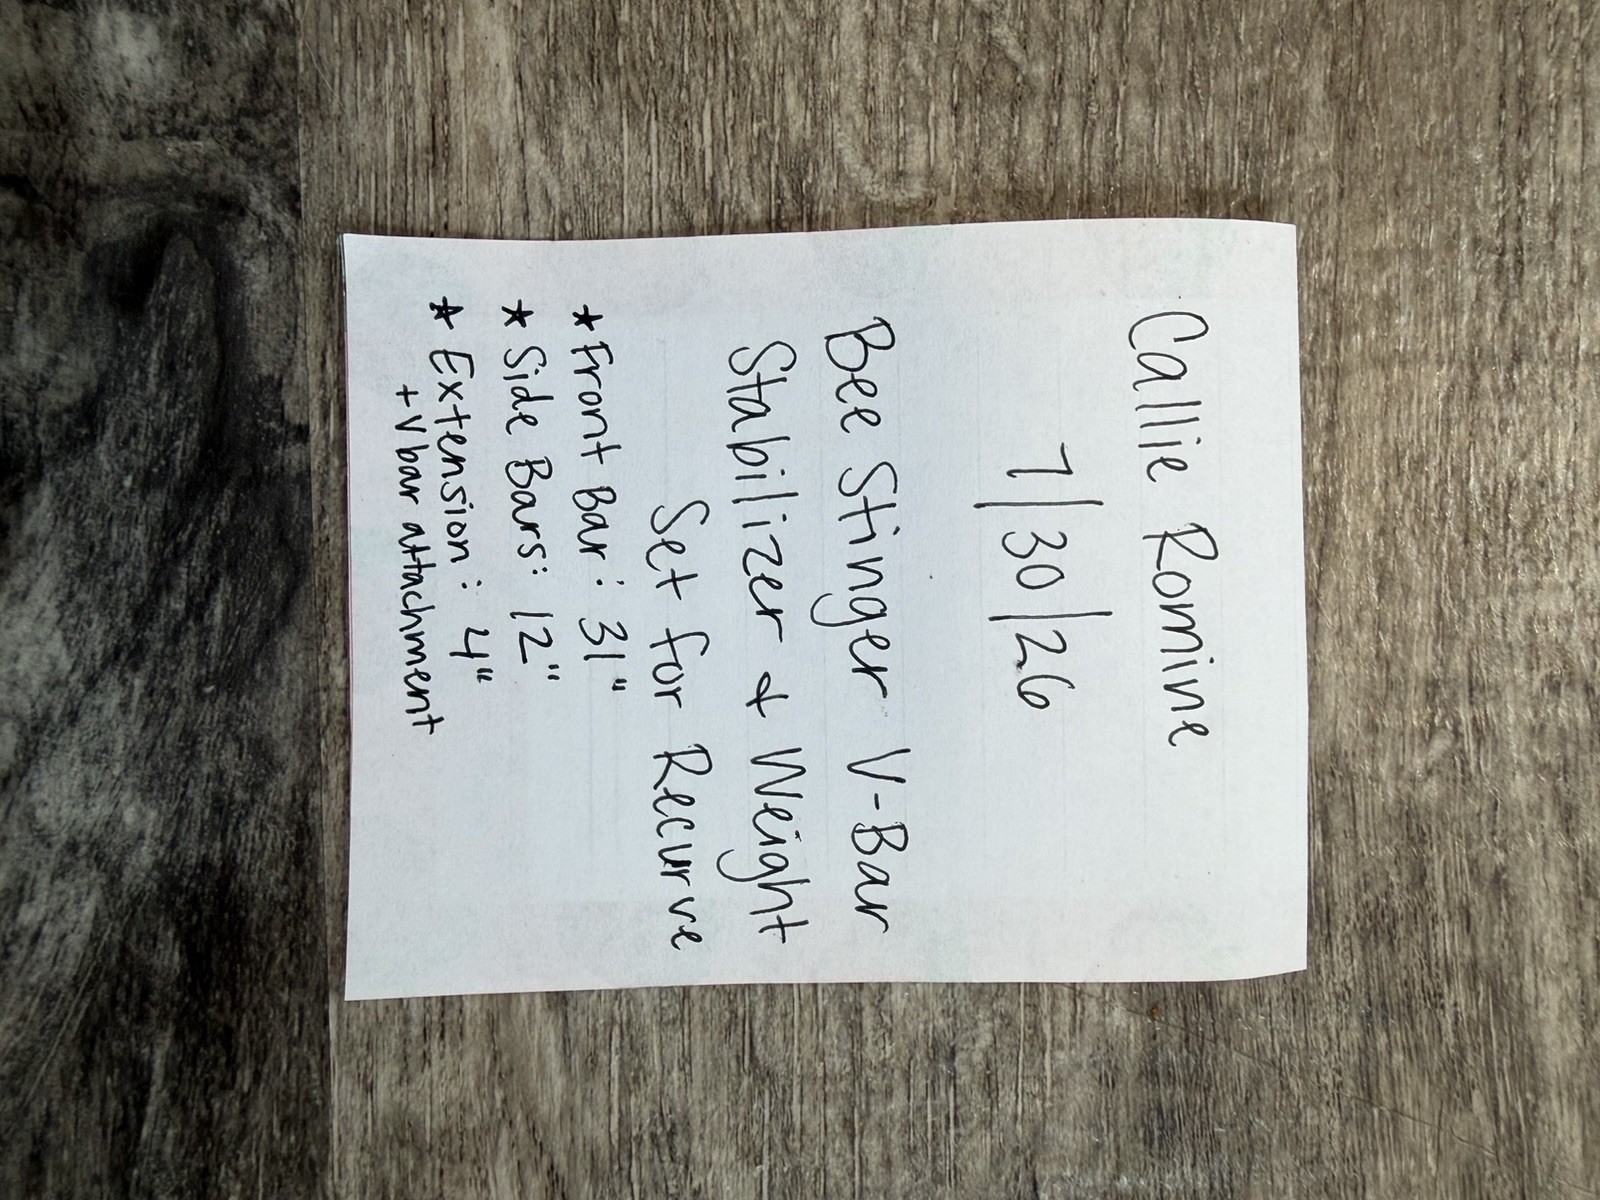 Callie Romine
7/30/26
Bee Stinger V-Bar
Stabilizer & Weight
Set for Recurve
* Front Bar: 31"
* Side Bars: 12"
* Extension: 4"
+ V bar attachment